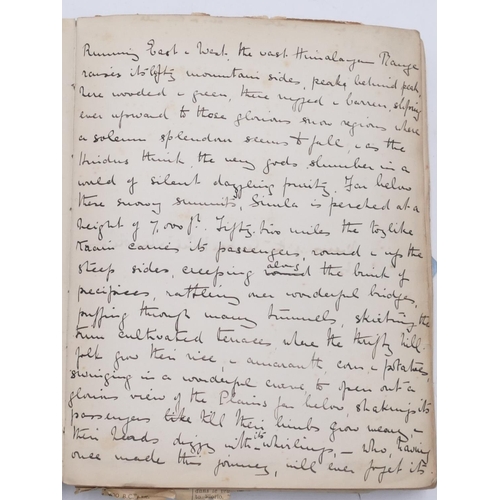 Running East & West, the vast Himalayan Range
raises its lofty mountain sides, peak behind peak,
here wooded & green, there rugged & barren, sloping
ever upward to those glorious snow regions where
a solemn splendour seems to fall, & as the
Hindus think, the very gods slumber in a
world of silent dazzling purity. Far below
these snowy summits, Simla is perched at a
height of 7,000 ft. Fifty-two miles the toylike
train carries its passengers, round & up the
steep sides, creeping along the brink of
precipices, rattling over wonderful bridges,
puffing through many tunnels, skirting the
cultivated terraces, where the thrifty hill
folk grow their rice, & amaranth, corn, & potatoes,
swinging in a wonderful curve to open out a
glorious view of the Plains far below, shaking its
passengers like till their limbs grow weary &
their heads dizzy with its whirlings, – who, having
once made this journey, will ever forget its